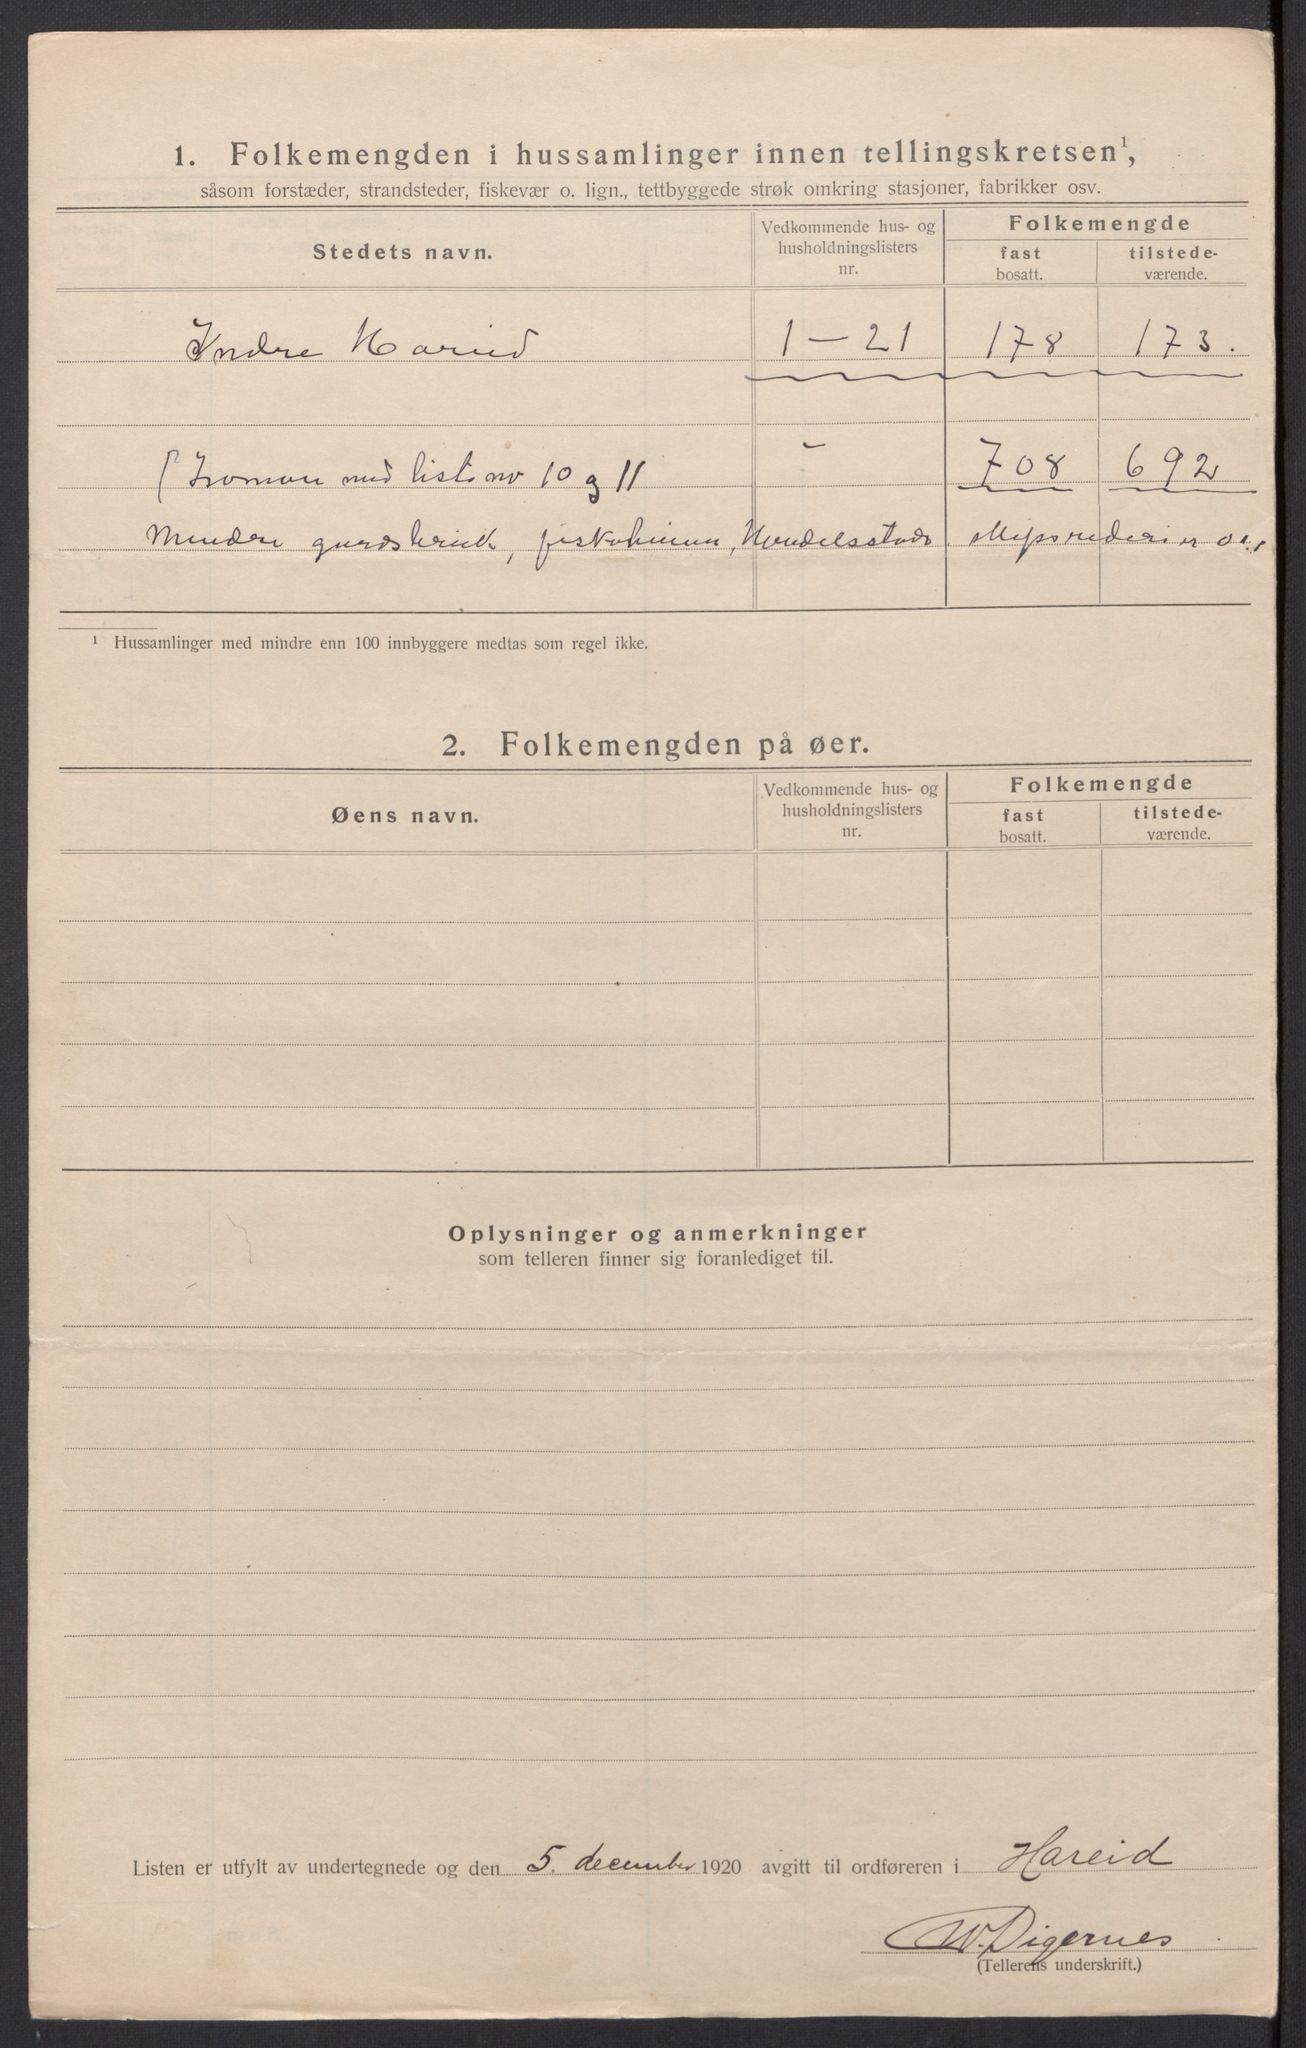 1. Folkemengden i hussamlinger innen tellingskretsen¹,
såsom forstæder, strandsteder, fiskevær o. lign., tettbyggede strøk omkring stasjoner, fabrikker osv.
Stedets navn.
Vedkommende hus- og husholdningslisters nr.
Folkemengde
fast bosatt.
tilstede-værende.
Indre Hareid 1 – 21 178 173.
med liste nr 10 og 11 - 708 692
Mindre gardsbruk, Handelssteds
¹ Hussamlinger med mindre enn 100 innbyggere medtas som regel ikke.
2. Folkemengden på øer.
Øens navn.
Vedkommende hus- og husholdningslisters nr.
Folkemengde
fast bosatt.
tilstede-værende.
Oplysninger og anmerkninger
som telleren finner sig foranlediget til.
Listen er utfylt av undertegnede og den 5. december 1920 avgitt til ordføreren i Hareid
W. Digernes
(Tellerens underskrift.)